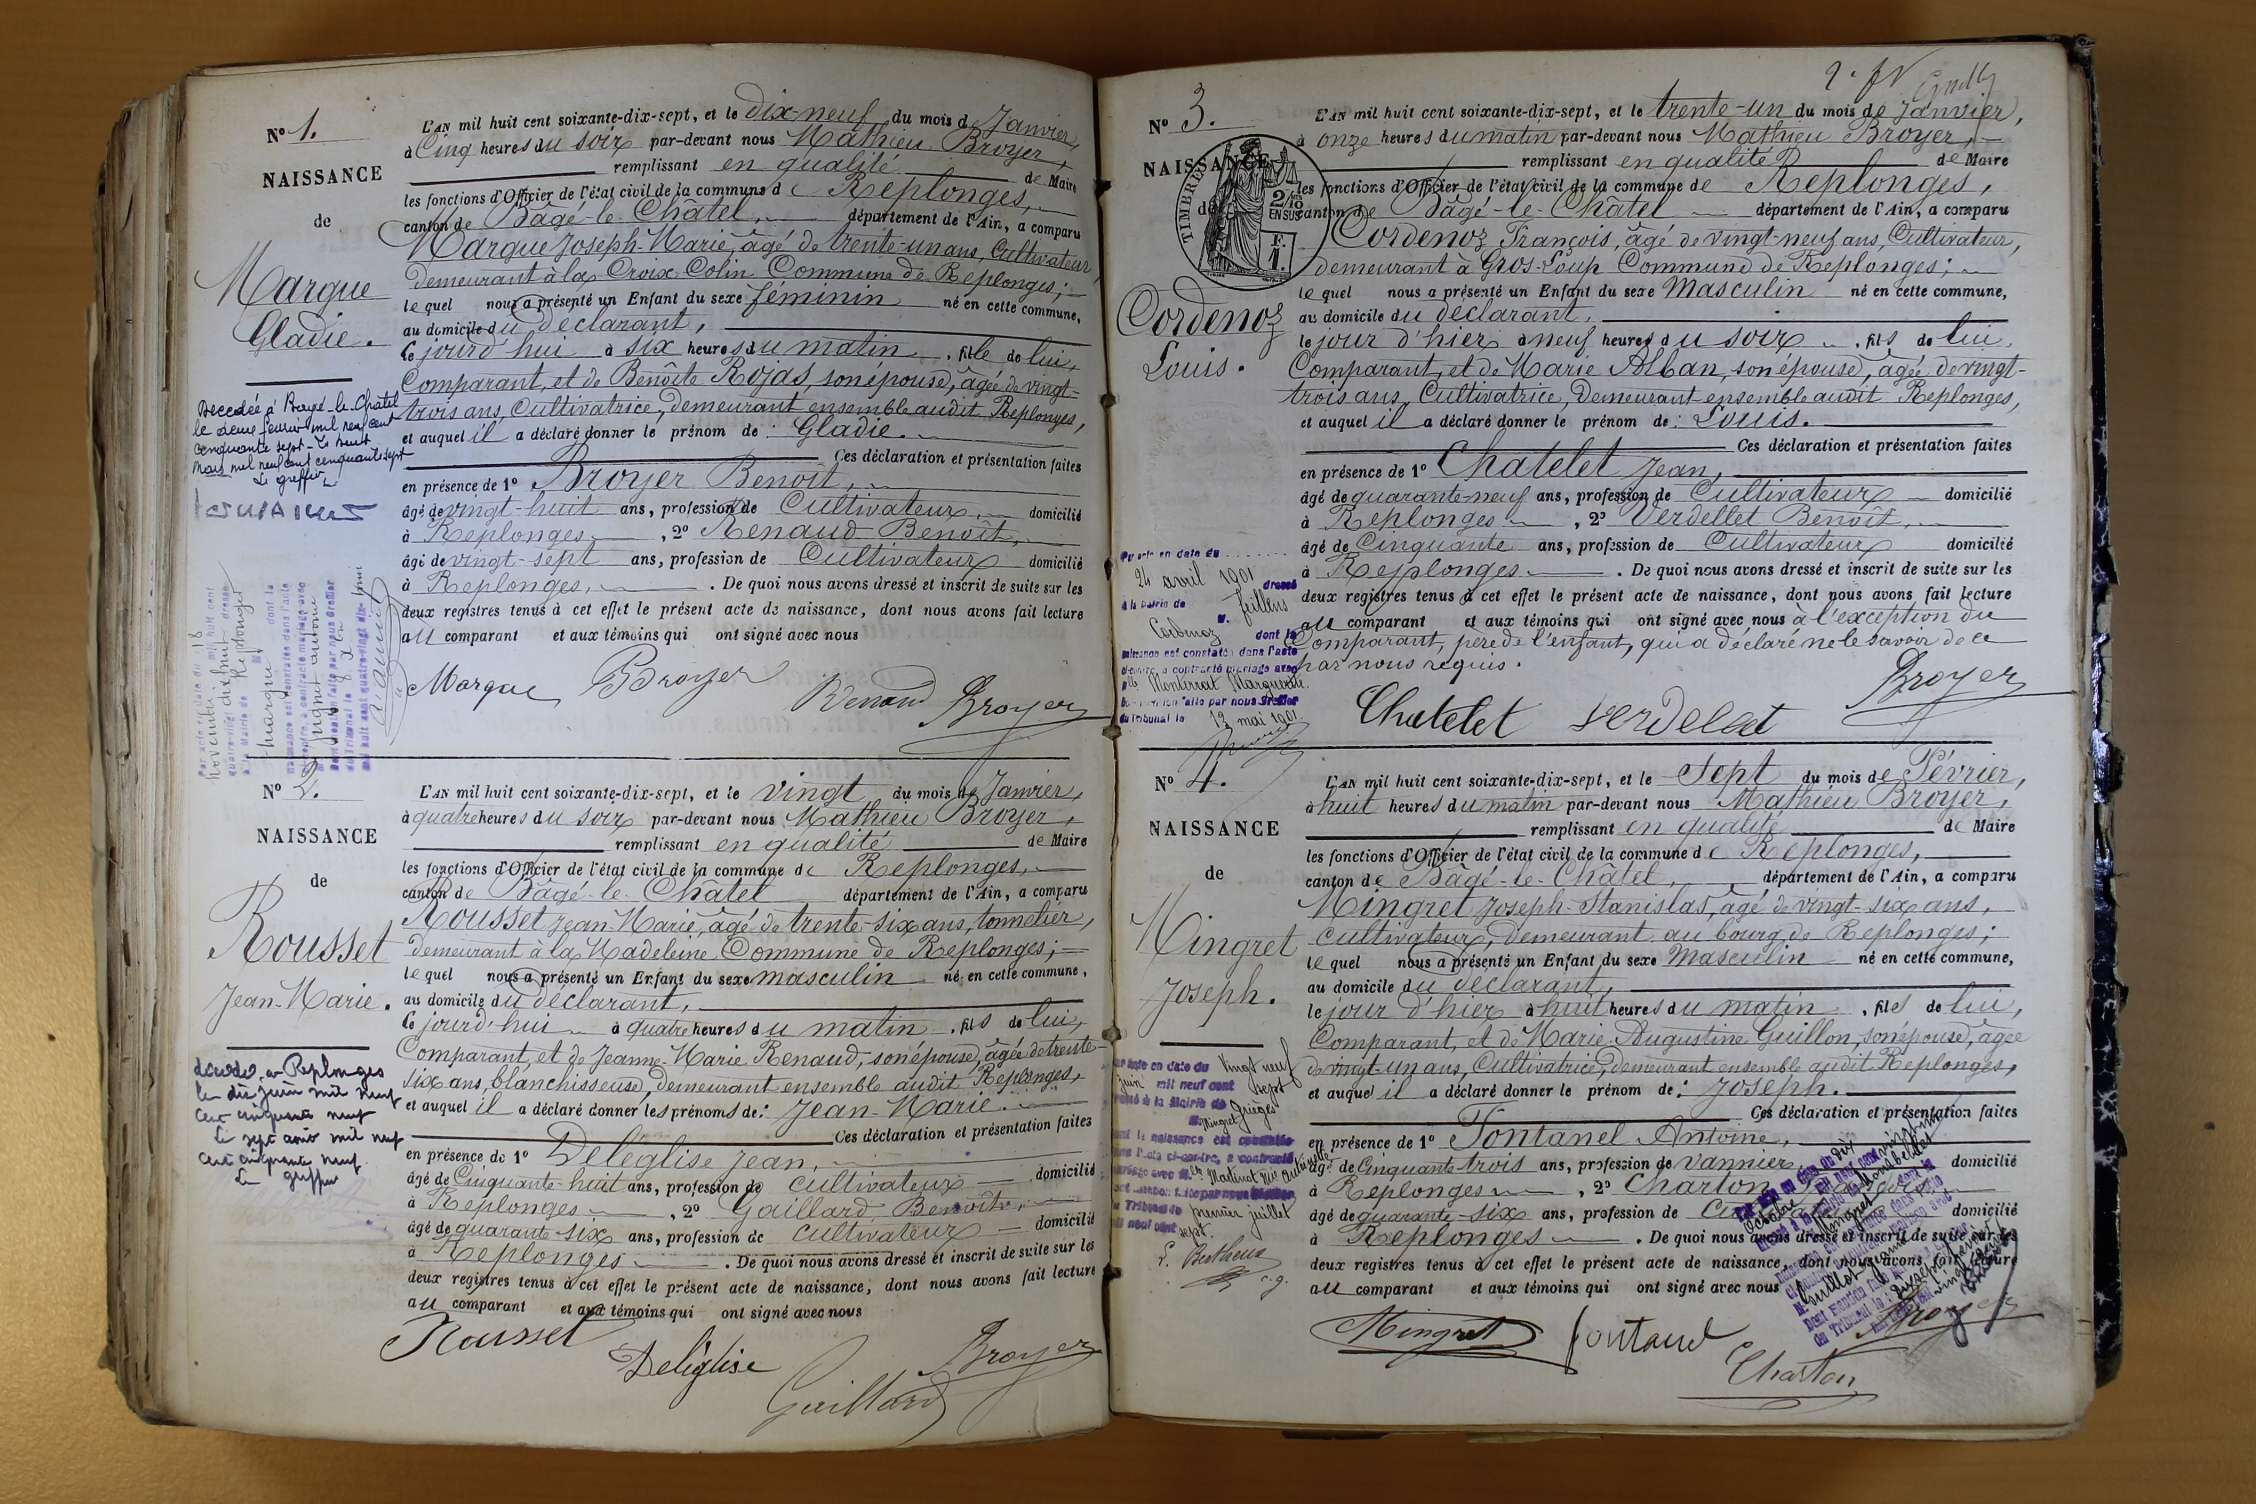 N° 1.
NAISSANCE
de
Marque
Gladie.
Decedée à Bagé-le-Chatel
le deux fevrier mil neuf cent
cinquante sept. Le huit
Mars mil neuf cent cinquante sept
Le greffier
L'AN mil huit cent soixante-dix-sept, et le Dix-neuf du mois de Janvier,
à Cinq heures du soir par-devant nous Mathieu Broyer,
remplissant en qualité de Maire
les fonctions d'Officier de l'état civil de la commune de Replonges,
canton de Bâgé-le-Châtel, département de l'Ain, a comparu
Marque Joseph-Marie, âgé de trente-un ans, Cultivateur,
demeurant à la Croix-Colin Commune de Replonges;
lequel nous a présenté un Enfant du sexe féminin né en cette commune,
au domicile du déclarant,
ce jourd'hui à six heures du matin, fille de lui,
Comparant, et de Benoîte Rojas, son épouse, âgée de vingt-
trois ans, Cultivatrice, demeurant ensemble audit Replonges,
et auquel il a déclaré donner le prénom de : Gladie.
Ces déclaration et présentation faites
en présence de 1° Broyer Benoît,
âgé de vingt-huit ans, profession de Cultivateur, domicilié
à Replonges, 2° Renaud Benoît,
âgé de vingt-sept ans, profession de Cultivateur domicilié
à Replonges, . De quoi nous avons dressé et inscrit de suite sur les
deux registres tenus à cet effet le présent acte de naissance, dont nous avons fait lecture
au comparant et aux témoins qui ont signé avec nous
Marque Broyer Renaud Broyer
N° 2.
NAISSANCE
de
Rousset
Jean-Marie.
décédé à Replonges
le dix juin mil neuf
cent cinquante neuf
Le sept août mil neuf
cent cinquante neuf
Le greffier
L'AN mil huit cent soixante-dix-sept, et le vingt du mois de Janvier,
à quatre heures du soir par-devant nous Mathieu Broyer,
remplissant en qualité de Maire
les fonctions d'Officier de l'état civil de la commune de Replonges,
canton de Bâgé-le-Châtel département de l'Ain, a comparu
Rousset Jean-Marie, âgé de trente-six ans, tonnelier,
demeurant à la Madeleine Commune de Replonges;
lequel nous a présenté un Enfant du sexe masculin né en cette commune,
au domicile du déclarant,
ce jourd'hui à quatre heures du matin, fils de lui,
Comparant, et de Jeanne-Marie Renaud, son épouse, âgée de trente-
six ans, blanchisseuse, demeurant ensemble audit Replonges,
et auquel il a déclaré donner les prénoms de : Jean-Marie.
Ces déclaration et présentation faites
en présence de 1° Deléglise Jean,
âgé de Cinquante-huit ans, profession de cultivateur domicilié
à Replonges, 2° Gaillard Benoît,
âgé de quarante-six ans, profession de cultivateur domicilié
à Replonges . De quoi nous avons dressé et inscrit de suite sur les
deux registres tenus à cet effet le présent acte de naissance, dont nous avons fait lecture
au comparant et aux témoins qui ont signé avec nous
Rousset Deléglise Gaillard Broyer
N° 3.
NAISSANCE
de
TIMBRE
2/10
EN SUS
F.
1.
Cordenoz
Louis.
Par acte en date du
24 avril 1901 dressé
à la Mairie de Feillens
M. Cordenoz dont la
naissance est constatée dans l'acte
ci-contre, a contracté mariage avec
Mlle Monterrat Marguerite.
faite par nous Greffier
du Tribunal le 13 mai 1901
L'AN mil huit cent soixante-dix-sept, et le trente-un du mois de Janvier,
à onze heures du matin par-devant nous Mathieu Broyer,
remplissant en qualité de Maire
les fonctions d'Officier de l'état civil de la commune de Replonges,
canton de Bâgé-le-Châtel département de l'Ain, a comparu
Cordenoz François, âgé de vingt-neuf ans, Cultivateur,
demeurant à Gros-Loup Commune de Replonges;
lequel nous a présenté un Enfant du sexe Masculin né en cette commune,
au domicile du déclarant,
le jour d'hier à neuf heures du soir, fils de lui,
Comparant, et de Marie Alban, son épouse, âgée de vingt-
trois ans, Cultivatrice, demeurant ensemble audit Replonges,
et auquel il a déclaré donner le prénom de : Louis.
Ces déclaration et présentation faites
en présence de 1° Chatelet Jean,
âgé de quarante-neuf ans, profession de Cultivateur domicilié
à Replonges, 2° Verdellet Benoît,
âgé de Cinquante ans, profession de Cultivateur domicilié
à Replonges . De quoi nous avons dressé et inscrit de suite sur les
deux registres tenus à cet effet le présent acte de naissance, dont nous avons fait lecture
au comparant et aux témoins qui ont signé avec nous à l'exception du
Comparant, père de l'enfant, qui a déclaré ne le savoir de ce
par nous requis.
Chatelet Verdelet Broyer
N° 4.
NAISSANCE
de
Mingret
Joseph.
Par acte en date du vingt neuf
juin mil neuf cent sept
dressé à la Mairie de Grièges
M. Mingret
dont la naissance est constatée
dans l'acte ci-contre, a contracté
mariage avec Mlle Matinot Mie Antoinette
du Tribunal le premier juillet
mil neuf cent sept.
L. Berthoux
c. g.
L'AN mil huit cent soixante-dix-sept, et le Sept du mois de Février,
à huit heures du matin par-devant nous Mathieu Broyer,
remplissant en qualité de Maire
les fonctions d'Officier de l'état civil de la commune de Replonges,
canton de Bâgé-le-Châtel, département de l'Ain, a comparu
Mingret Joseph-Stanislas, âgé de vingt-six ans,
cultivateur, demeurant au bourg de Replonges;
lequel nous a présenté un Enfant du sexe Masculin né en cette commune,
au domicile du déclarant,
le jour d'hier à huit heures du matin, fils de lui,
Comparant, et de Marie-Augustine Guillon, son épouse, âgée
de vingt-un ans, Cultivatrice, demeurant ensemble audit Replonges,
et auquel il a déclaré donner le prénom de : Joseph.
Ces déclaration et présentation faites
en présence de 1° Fontanel Antoine,
âgé de Cinquante-trois ans, profession de vannier domicilié
à Replonges, 2° Charton François
âgé de quarante-six ans, profession de domicilié
à Replonges . De quoi nous avons dressé et inscrit de suite sur les
deux registres tenus à cet effet le présent acte de naissance, dont nous avons fait lecture
au comparant et aux témoins qui ont signé avec nous
Mingret Fontanel Charton Broyer